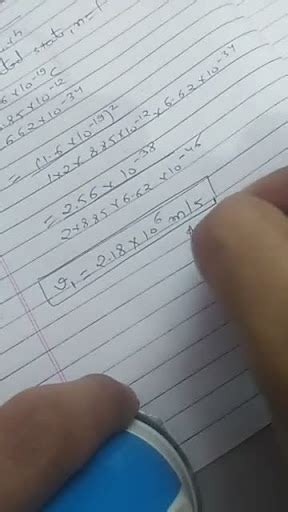 state, n=1
6×10⁻¹⁹ C
85×10⁻¹²
6.62×10⁻³⁴
= (1.6×10⁻¹⁹)²
1×2×8.85×10⁻¹²×6.62×10⁻³⁴
= 2.56×10⁻³⁸
2×8.85×6.62×10⁻⁴⁶
v₁ = 2.18×10⁶ m/s